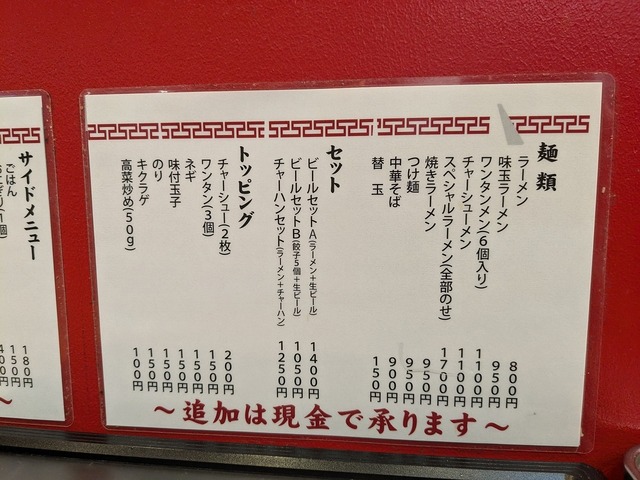 麺類
ラーメン 800円
味玉ラーメン 950円
ワンタンメン(6個入り) 1100円
チャーシューメン 1100円
スペシャルラーメン(全部のせ) 1700円
焼きラーメン 950円
つけ麺 950円
中華そば 900円
替玉 150円
セット
ビールセットA(ラーメン+生ビール) 1400円
ビールセットB(餃子5個+生ビール) 1050円
チャーハンセット(ラーメン+チャーハン) 1250円
トッピング
チャーシュー(2枚) 200円
ワンタン(3個) 150円
ネギ 150円
味付玉子 150円
のり 150円
キクラゲ 150円
高菜炒め(50g) 100円
〜追加は現金で承ります〜
サイドメニュー
ごはん 180円
150円